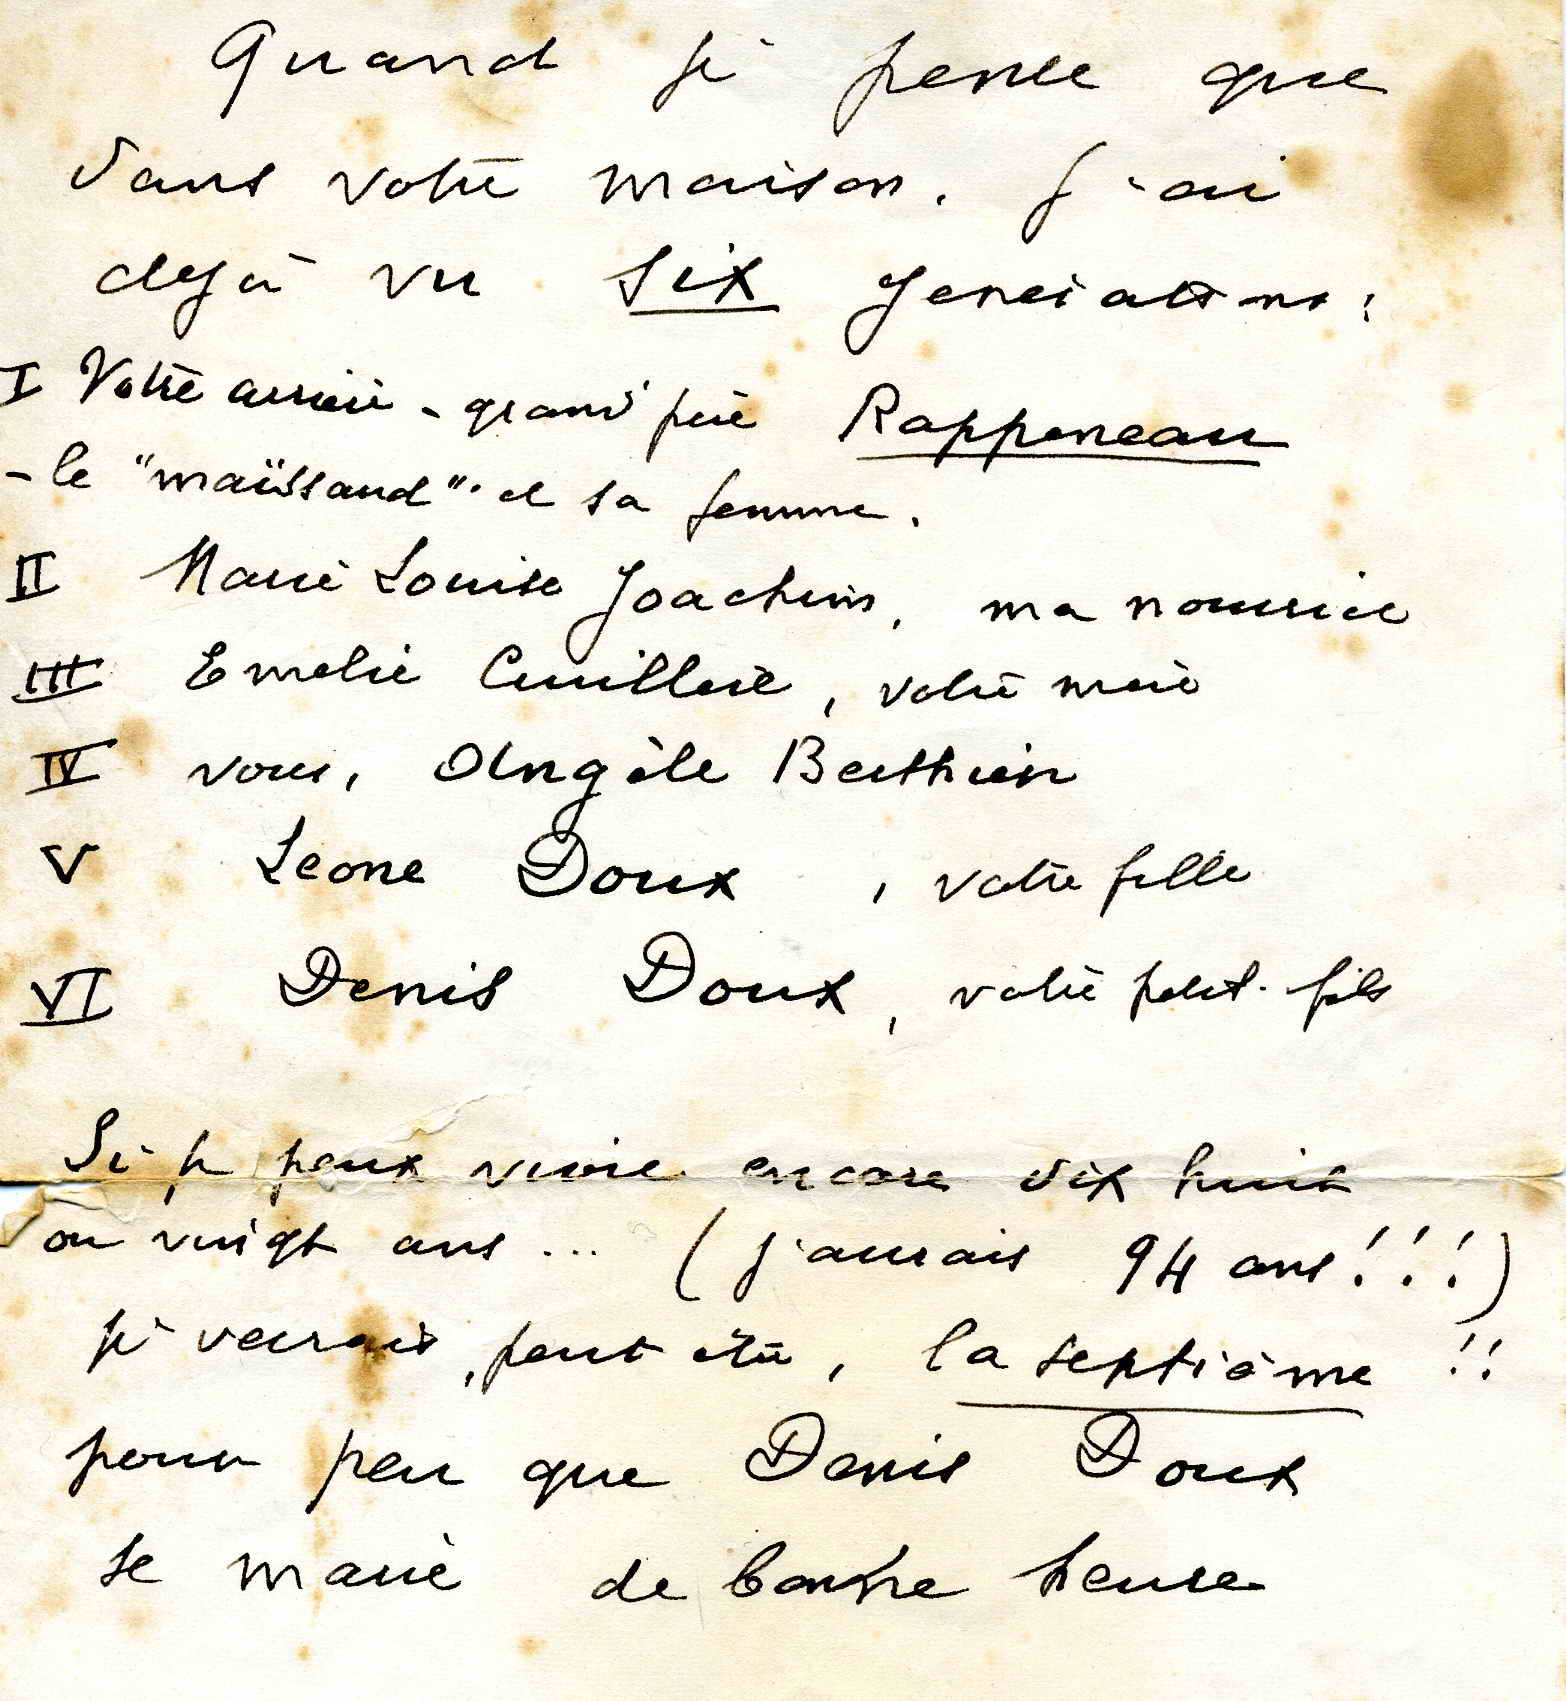 Quand je pense que
dans votre maison. J'ai
dejà vu six generations :
I Votre arrière - grand père Rapponeau
- le "maïssaud" et sa femme.
II Marie Louise Joachim, ma nourrice
III Emelie Cuillère, votre mère
IV vous, Angèle Berthier
V Leone Doux , votre fille
VI Denis Doux, votre petit-fils
Si je peux vivre encore dix huit
ou vingt ans ... (j'aurais 94 ans ! ! !)
je verrais, peut être, la septième !!
pour peu que Denis Doux
se marie de bonne heure